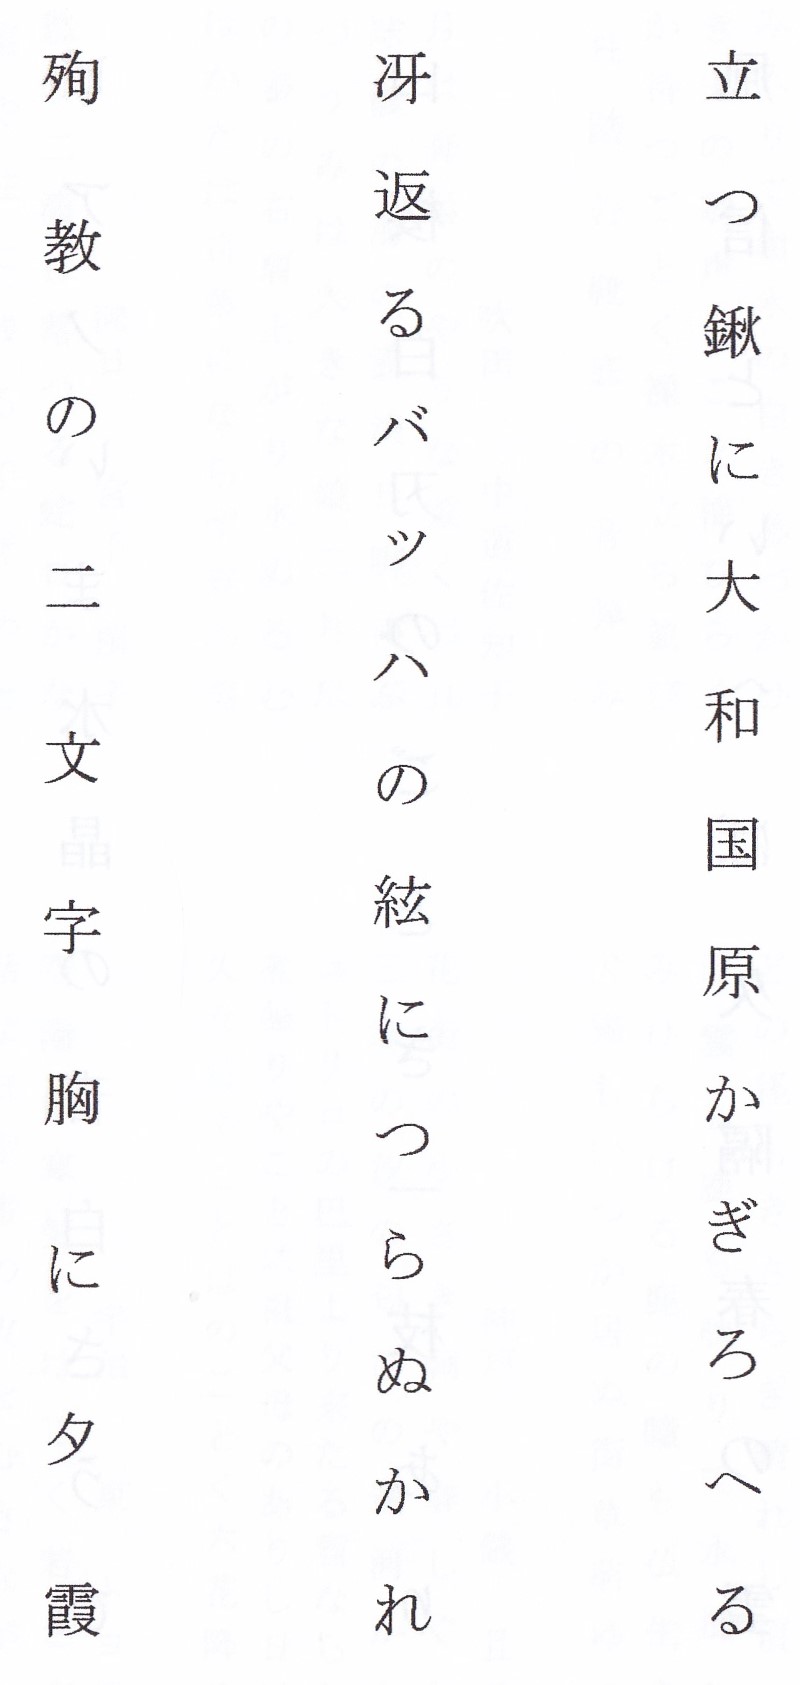 立つ鍬に大和国原かぎろへる
冴返るバッハの絃につらぬかれ
殉教の二文字胸に夕霞